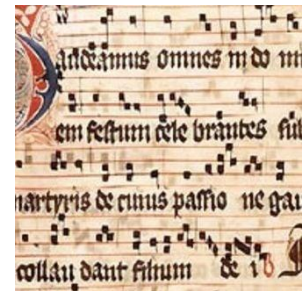 Gaudeamus omnes in do mi
em festum cele brantes sub
martyris de cuius passio ne gau
collau dant filium de i